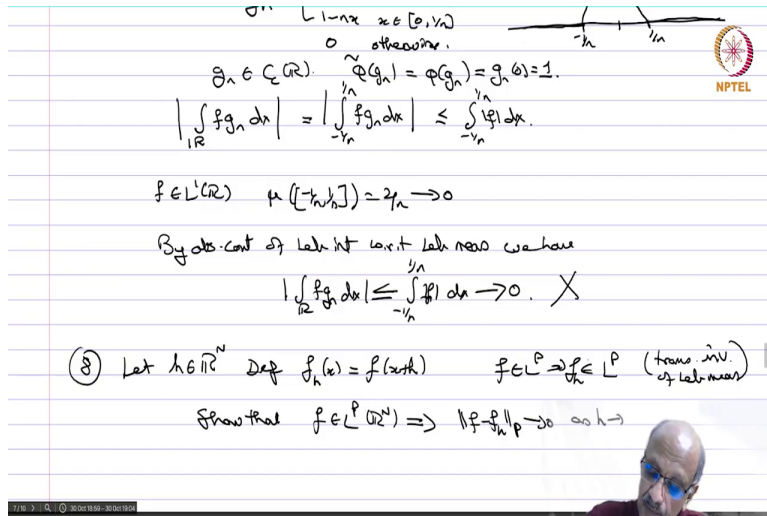 1-nx x ∈ [0, 1/n]
0 otherwise.
-1/n 1/n
g_n ∈ C_c(ℝ). φ̃(g_n) = φ(g_n) = g_n(0) = 1.
|∫_ℝ f g_n dx| = |∫_{-1/n}^{1/n} f g_n dx| ≤ ∫_{-1/n}^{1/n} |f| dx.
NPTEL
f ∈ L¹(ℝ) μ([-1/n, 1/n]) = 2/n → 0
By abs. cont of Leb int w.r.t Leb meas we have
|∫_ℝ f g_n dx| ≤ ∫_{-1/n}^{1/n} |f| dx → 0. X
⑧ Let h ∈ ℝ^N Def f_h(x) = f(x+h) f ∈ L^p ⇒ f_h ∈ L^p (trans. inv. of Leb meas)
Show that f ∈ L^p(ℝ^N) ⇒ ‖f-f_h‖_p → 0 as h →
7/10 30 Oct 18:59 - 30 Oct 19:04